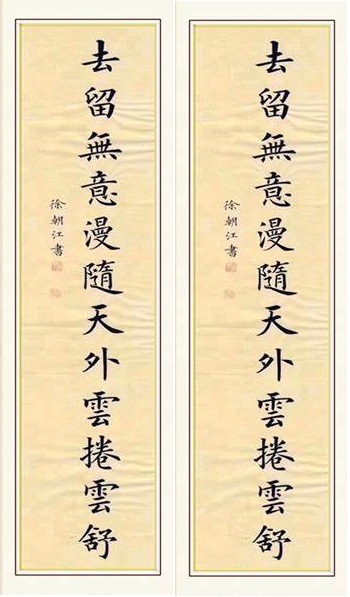 去留無意漫隨天外雲捲雲舒
徐朝江書
去留無意漫隨天外雲捲雲舒
徐朝江書